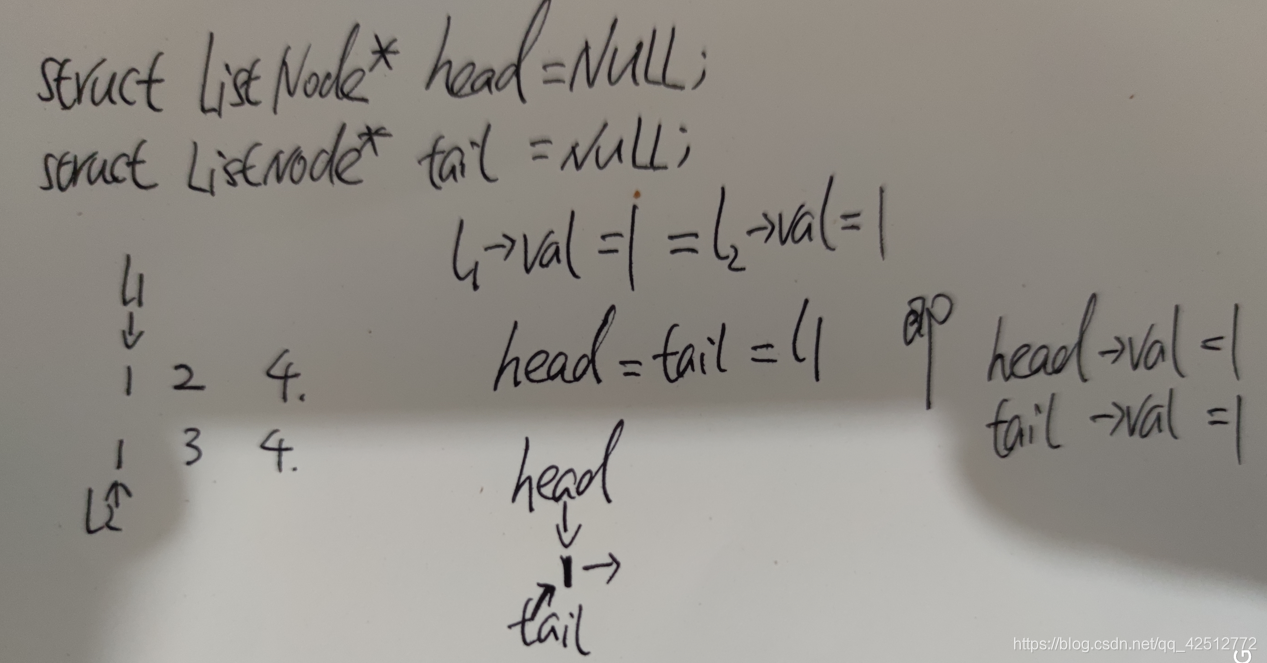 struct ListNode* head=NULL;
struct ListNode* tail =NULL;
l1→val =1 = l2→val=1
l1
↓
1 2 4.
1 3 4.
↑
L2
head = tail = l1 即 head→val =1
tail →val =1
head
↓
1 →
tail
https://blog.csdn.net/qq_42512772